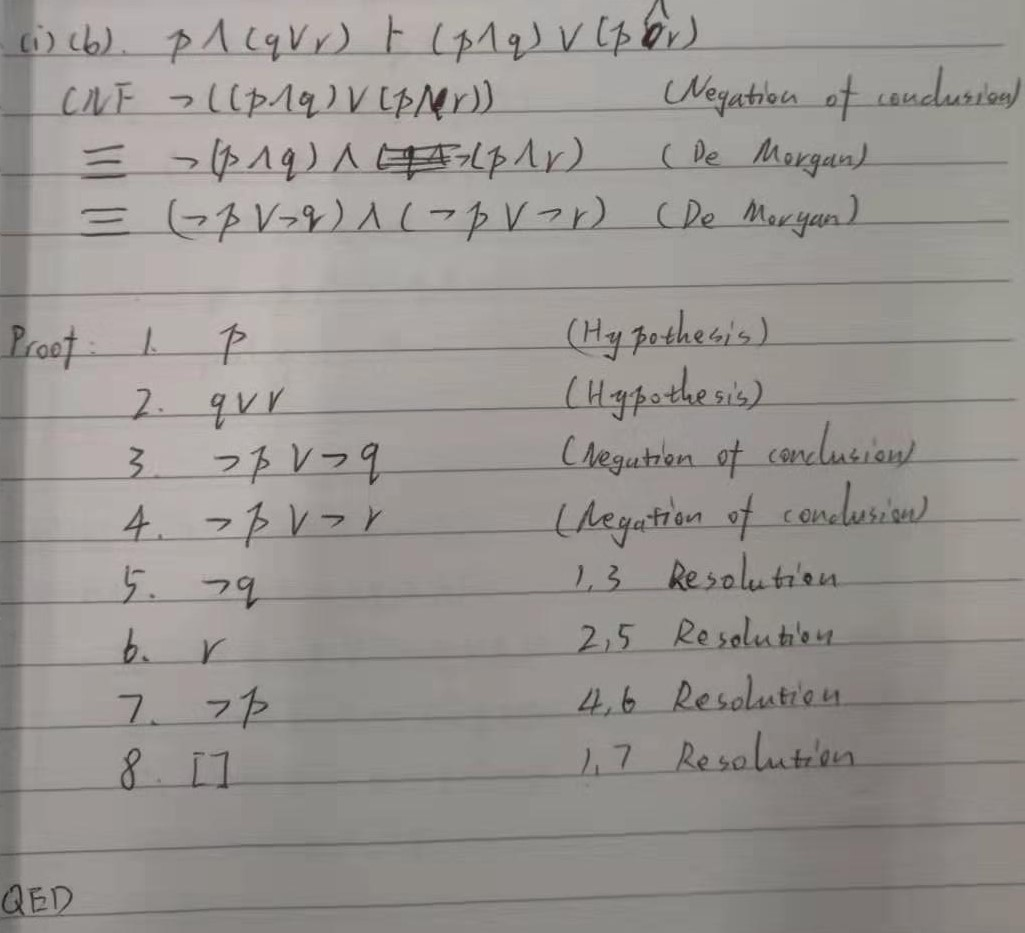 (i)(b). p∧(q∨r) ⊢ (p∧q)∨(p∧r)
CNF ¬((p∧q)∨(p∧r)) (Negation of conclusion)
≡ ¬(p∧q)∧¬(p∧r) (De Morgan)
≡ (¬p∨¬q)∧(¬p∨¬r) (De Morgan)
Proof: 1. p (Hypothesis)
2. q∨r (Hypothesis)
3. ¬p∨¬q (Negation of conclusion)
4. ¬p∨¬r (Negation of conclusion)
5. ¬q 1,3 Resolution
6. r 2,5 Resolution
7. ¬p 4,6 Resolution
8. [] 1,7 Resolution
QED